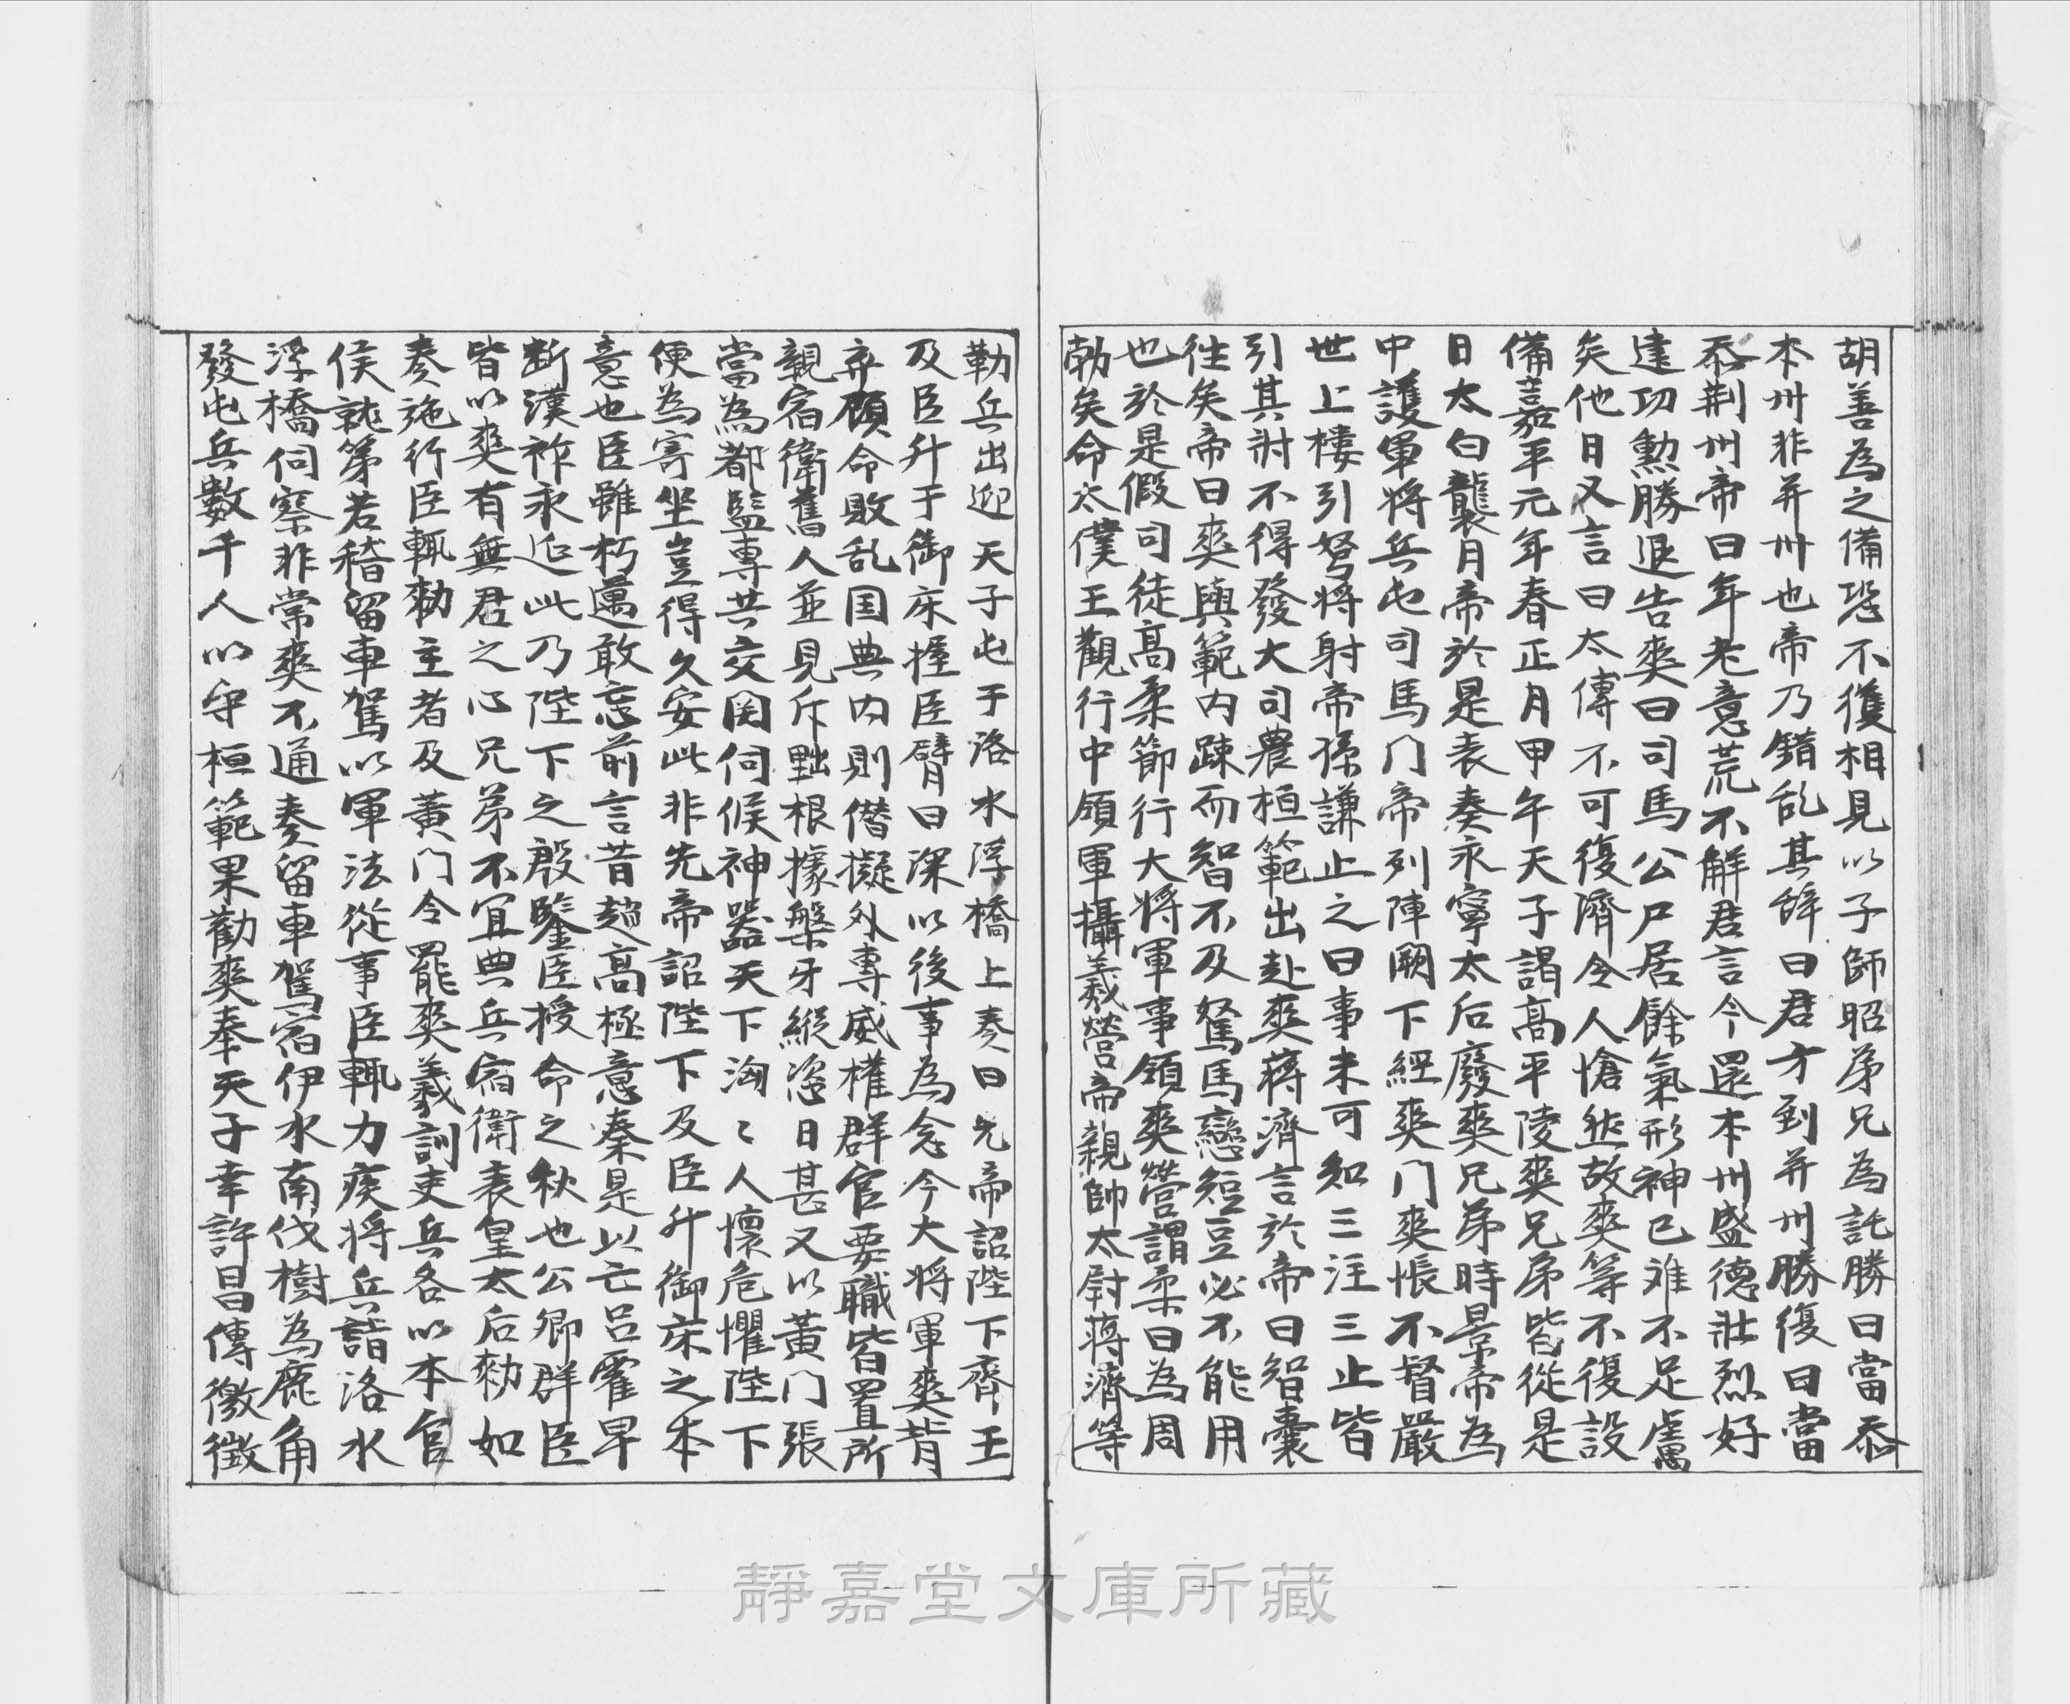 胡善為之備恐不復相見以子師昭弟兄為託勝曰當忝
本州非并州也帝乃錯乱其辭曰君方到并州勝復曰當
忝荆州帝曰年老意荒不解君言今還本州盛德壯烈好
建功勲勝退告爽曰司馬公尸居餘氣形神已难不足慮
矣他日又言曰太傅不可復濟令人愴然故爽等不復設
備嘉平元年春正月甲午天子謁髙平陵爽兄弟皆從是
日太白襲月帝於是表奏永寧太后廢爽兄弟時景帝為
中護軍将兵屯司馬门帝列陣闕下經爽门爽帳下督嚴
世上樓引弩将射帝孫謙止之曰事未可知三注三止皆
引其肘不得發大司農桓範出赴爽蒋濟言於帝曰智囊
徃矣帝曰爽與範内踈而智不及駑馬戀短豆必不能用
也於是假司徒髙柔節行大将軍事領爽營謂柔曰為周
勃矣命太僕王觀行中領軍攝羲營帝親帥太尉蒋濟等
勒兵出迎天子屯于洛水浮橋上奏曰先帝詔陛下齊王
及臣升于御床握臣臂曰深以後事為念今大将軍爽背
弃顧命敗乱国典内則僭擬外專威權群官要職皆置所
親宿衛舊人並見斥黜根據槃牙縱恣日甚又以黄门張
當為都監專共交関伺候神器天下洶〻人懷危懼陛下
便為寄坐豈得久安此非先帝詔陛下及臣升御床之本
意也臣雖朽邁敢忘前言昔趙髙極意秦是以亡吕霍早
断漢祚永延此乃陛下之殷鑒臣授命之秋也公卿群臣
皆以爽有無君之心兄弟不宜典兵宿衛表皇太后勑如
奏施行臣輒勑主者及黄门令罷爽羲訓吏兵各以本官
侯就第若稽留車駕以軍法從事臣輒力疾将兵詣洛水
浮橋伺察非常爽不通奏留車駕宿伊水南伐樹為鹿角
發屯兵數千人以守桓範果勸爽奉天子幸許昌傳檄徴
靜嘉堂文庫所藏